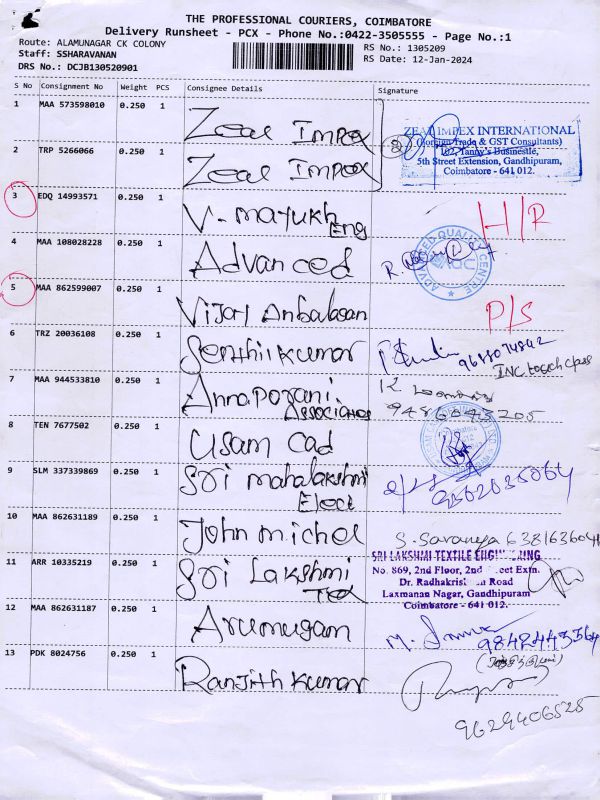 THE PROFESSIONAL COURIERS, COIMBATORE
Delivery Runsheet - PCX - Phone No.:0422-3505555 - Page No.:1
Route: ALAMUNAGAR CK COLONY
Staff: SSHARAVANAN
DRS No.: DCJB130520901
RS No.: 1305209
RS Date: 12-Jan-2024
S No Consignment No Weight PCS Consignee Details Signature
1 MAA 573598010 0.250 1 Zeal Impex
2 TRP 5266066 0.250 1 Zeal Impex
ZEAL IMPEX INTERNATIONAL
(Foreign Trade & GST Consultants)
5th Street Extension, Gandhipuram,
Coimbatore - 641 012.
3 EDQ 14993571 0.250 1 V-mayukh Eng H/R
4 MAA 108028228 0.250 1 Advanced
ADVANCED QUALITY CENTRE
AQC
5 MAA 862599007 0.250 1 Vijay Anbalagan P/S
6 TRZ 20036108 0.250 1 Senthil Kumar
INC touch class
7 MAA 944533810 0.250 1 Annaporani Associates
9486043205
8 TEN 7677502 0.250 1 Usam Cad
9 SLM 337339869 0.250 1 Sri Mahalakshmi Elect
10 MAA 862631189 0.250 1 John michel S. Saranya
11 ARR 10335219 0.250 1 Sri Lakshmi Tex
SRI LAKSHMI TEXTILE
No. 869, 2nd Floor, 2nd Extn.
Dr. Road
Laxmanan Nagar, Gandhipuram
Coimbatore - 641 012.
12 MAA 862631187 0.250 1 Arumugam
13 PDK 8024756 0.250 1 Ranjith Kumar
9629406525